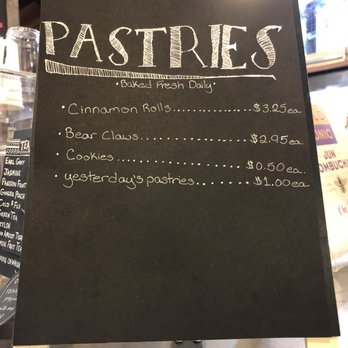 PASTRIES
•Baked Fresh Daily•
• Cinnamon Rolls..............$3.25ea.
• Bear Claws..................$2.95ea.
• Cookies.....................$0.50ea.
• yesterday's pastries........$1.00ea.
TEA
EARL GREY
JASMINE
PASSION FRUIT
GINGER PEACH
GREEN TEA
JUN